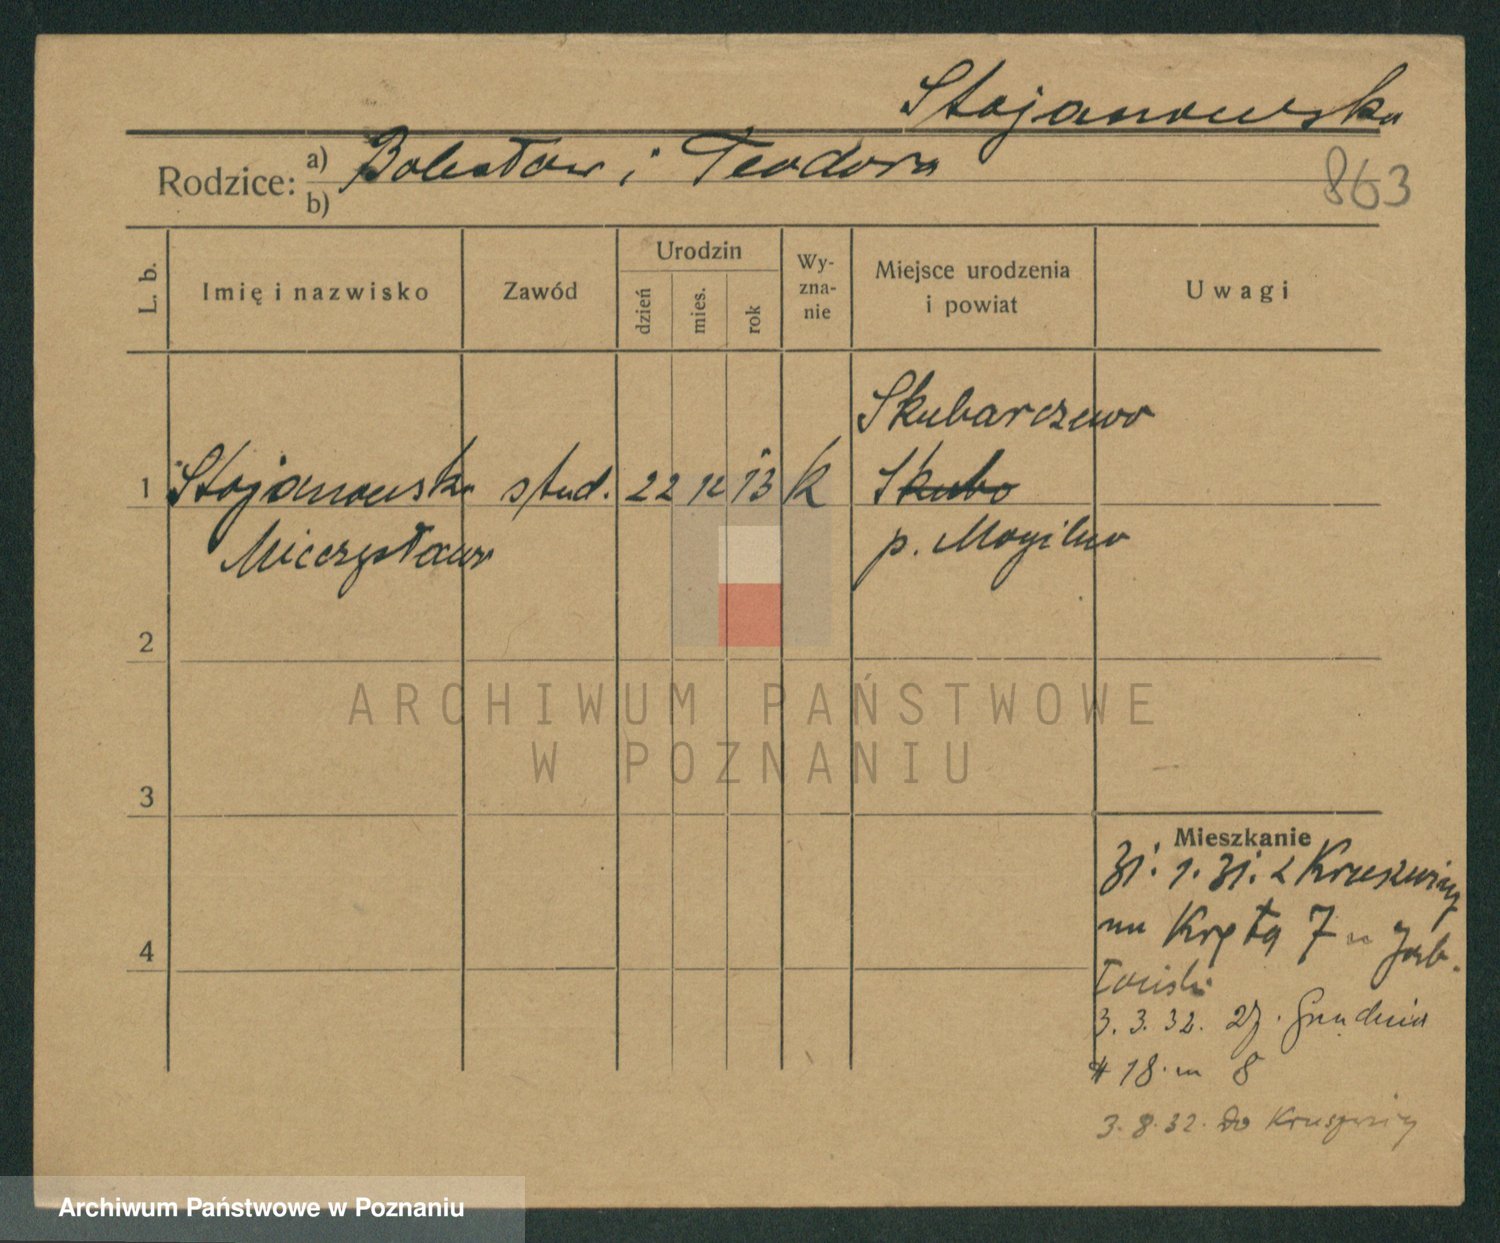 Stojanowska
Rodzice: a) Bolesław i Teodora
b)
863
L. b.
Imię i nazwisko
Zawód
Urodzin
dzień
mies.
rok
Wy-
zna-
nie
Miejsce urodzenia
i powiat
Uwagi
Skubarczewo
1 Stojanowska stud. 22 12 13 k Skubo
Mieczysława p. Mogilno
2
3
4
ARCHIWUM PAŃSTWOWE
W POZNANIU
Mieszkanie
z Kruszwicy
na Krętą 7
3. 3. 32. 27. Grudnia
18. m 8
3. 8. 32. do Kruszwicy
Archiwum Państwowe w Poznaniu